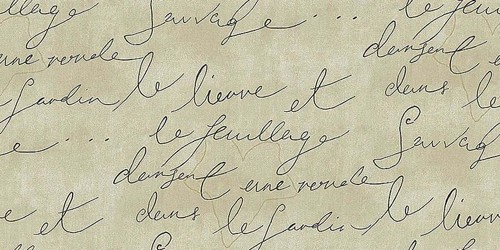 llage Sauvage ... le feu
dansent e
une ronde le lievre et dans le
Jardin
e ... le feuillage Sauvag
dansent une ronde
e et dans le Jardin le lievre